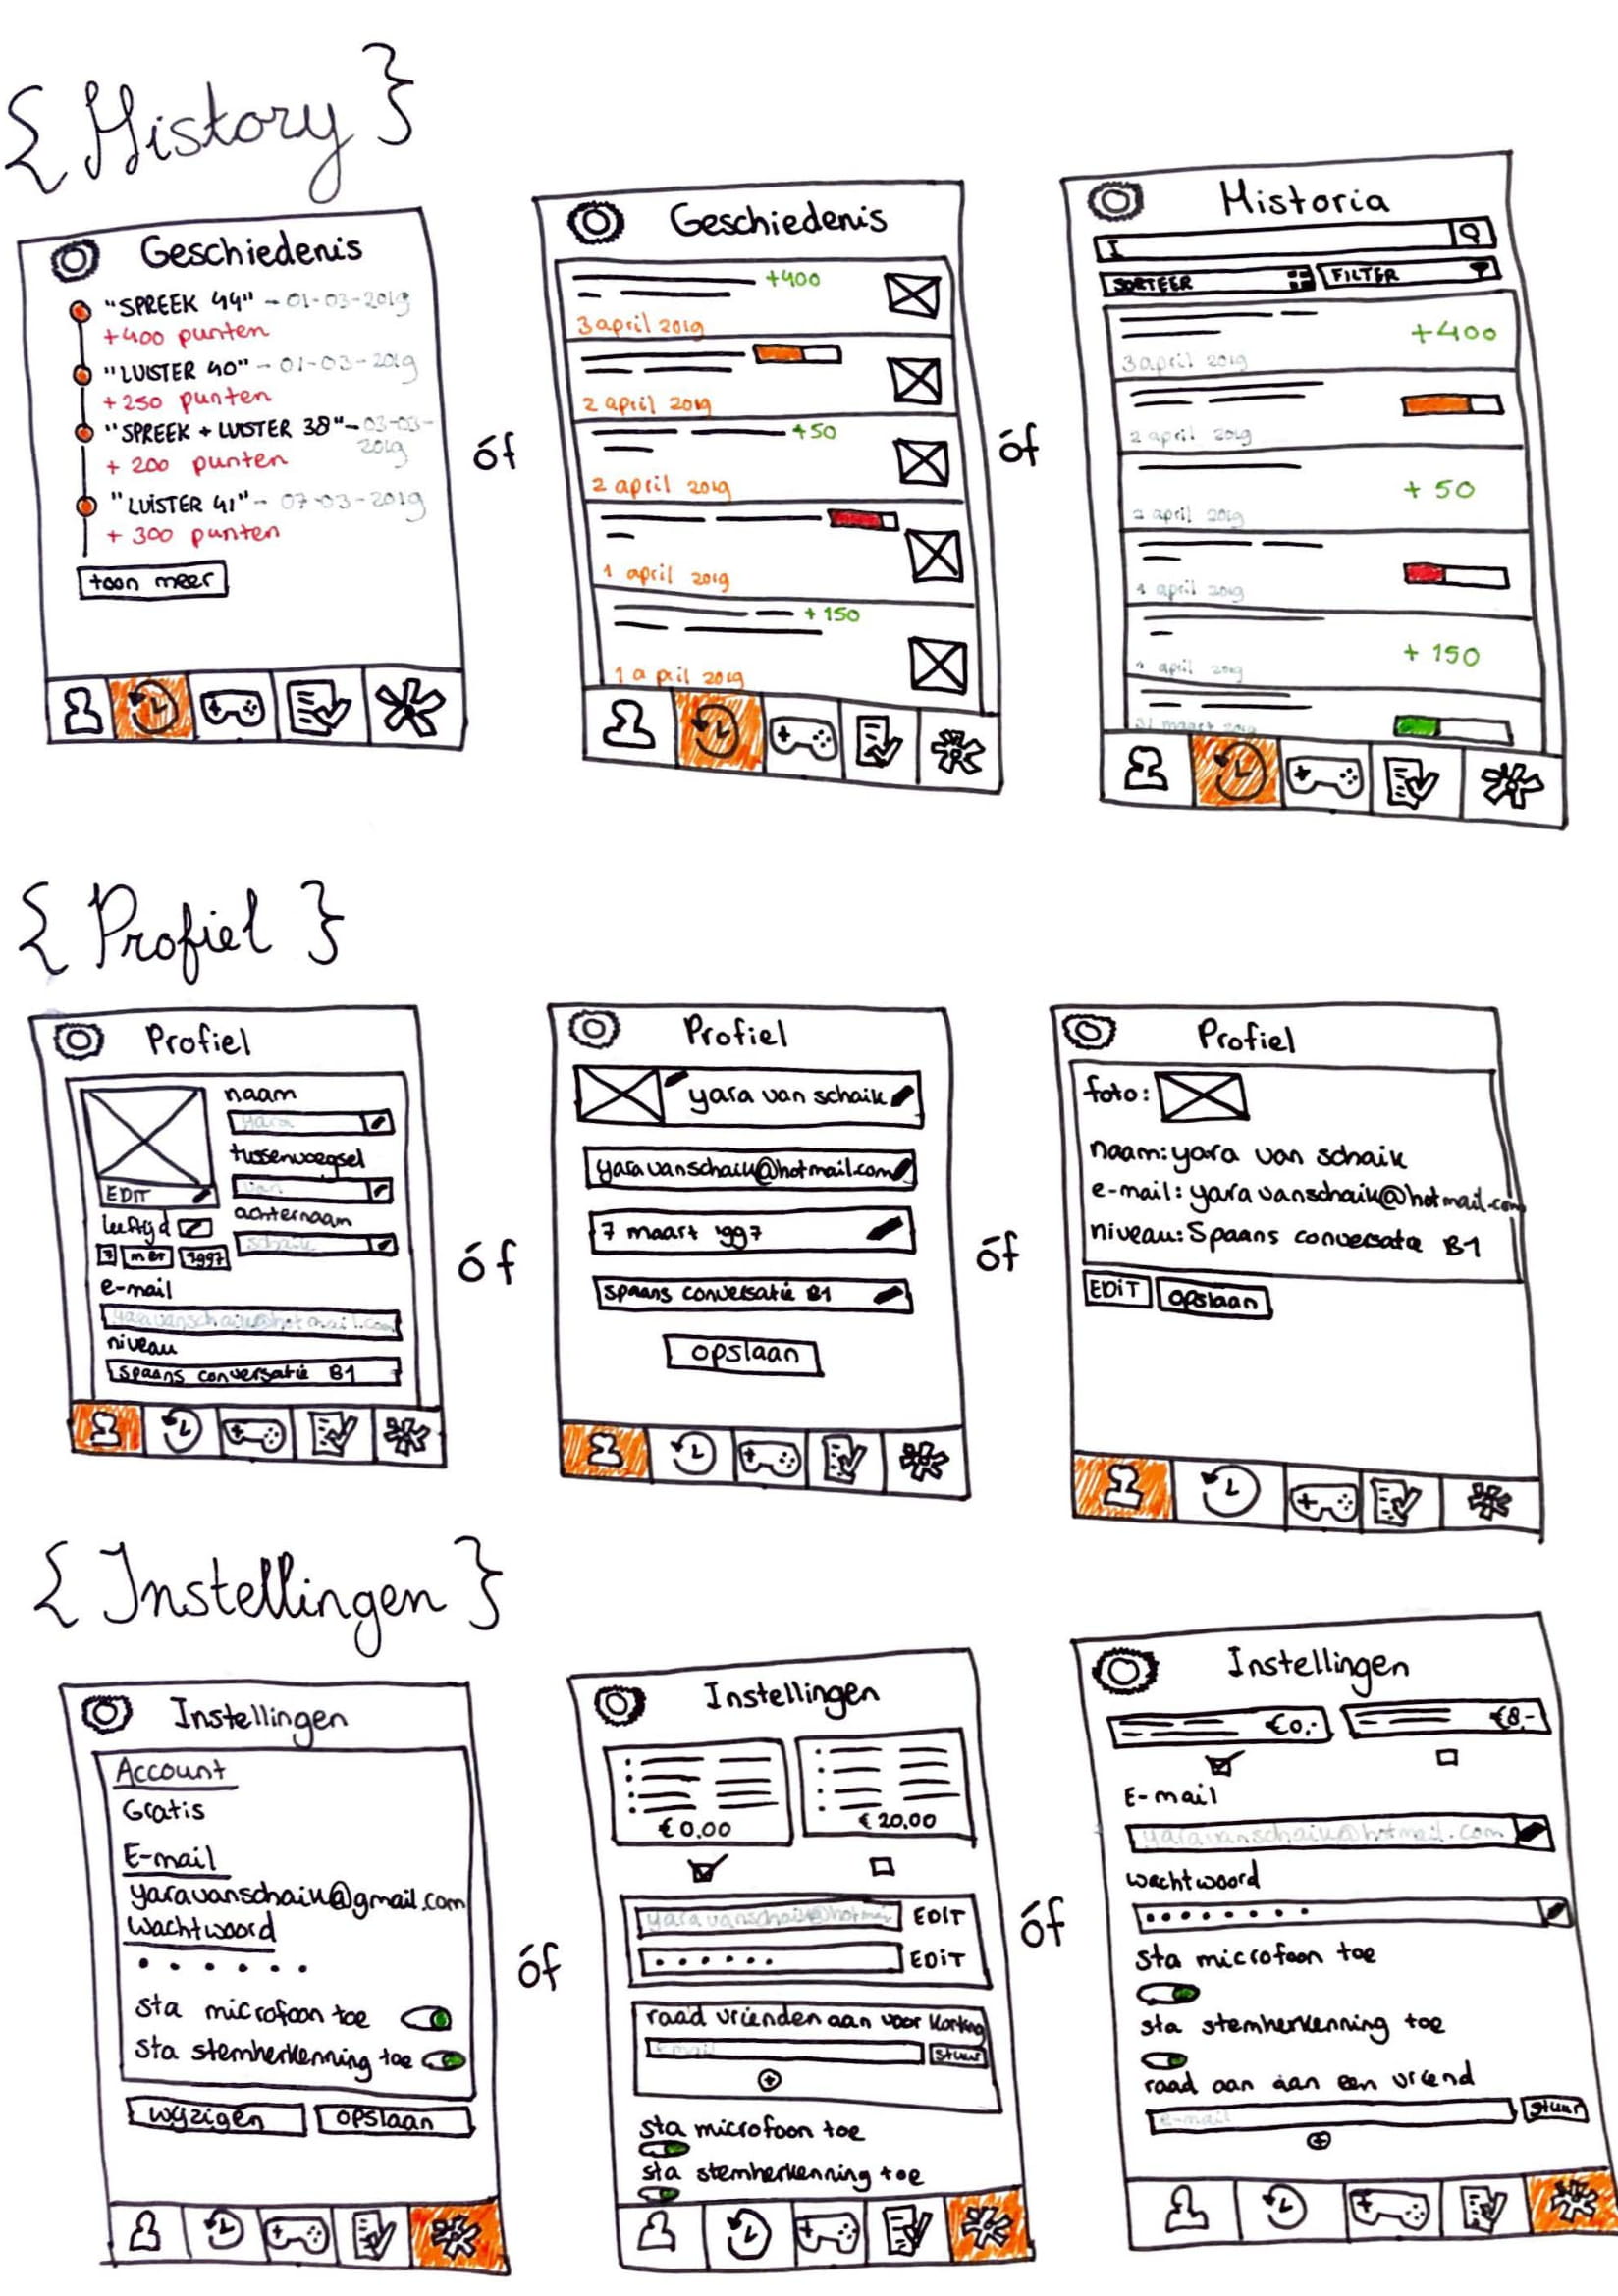 { History }
Geschiedenis
"SPREEK 44" - 01-03-2019
+400 punten
"LUISTER 40" - 01-03-2019
+250 punten
"SPREEK + LUISTER 38" - 03-03-
2019
+ 200 punten
"LUISTER 41" - 07-03-2019
+ 300 punten
toon meer
óf
Geschiedenis
+400
3 april 2019
2 april 2019
+50
2 april 2019
1 april 2019
+150
1 april 2019
óf
Historia
I
SORTEER
FILTER
+400
3 april 2019
2 april 2019
+ 50
2 april 2019
1 april 2019
+ 150
1 april 2019
31 maart 2019
{ Profiel }
Profiel
naam
yara
EDIT
tussenvoegsel
van
leeftijd
achternaam
schaik
7 mrt 1997
e-mail
yaravanschaik@hotmail.com
niveau
spaans conversatie B1
óf
Profiel
yara van schaik
yaravanschaik@hotmail.com
7 maart 1997
spaans conversatie B1
opslaan
óf
Profiel
foto:
naam: yara van schaik
e-mail: yaravanschaik@hotmail.com
niveau: Spaans conversatie B1
EDIT opslaan
{ Instellingen }
Instellingen
Account
Gratis
E-mail
yaravanschaik@gmail.com
Wachtwoord
sta microfoon toe
sta stemherkenning toe
wijzigen opslaan
óf
Instellingen
€ 0,00
€ 20,00
yaravanschaik@hotmai EDIT
EDIT
raad vrienden aan voor korting
Email stuur
sta microfoon toe
sta stemherkenning toe
óf
Instellingen
€0,- €8,-
E-mail
yaravanschaik@hotmail.com
wachtwoord
sta microfoon toe
sta stemherkenning toe
raad aan aan een vriend
e-mail stuur